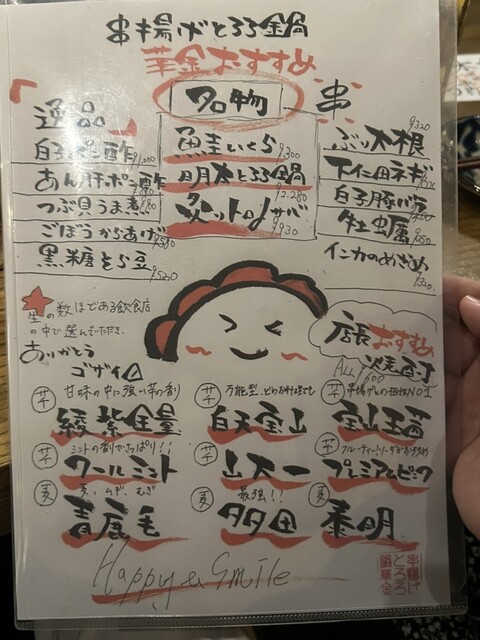 串揚げとろろ鍋
華金おすすめ
名物
逸品
白子ポン酢
あん肝ポン酢
つぶ貝うま煮
ごぼうからあげ
黒糖そら豆
鮭いくら
¥300
明太とろろ鍋
¥2,280
炙りトロサバ
¥930
串
ぶり大根
¥320
下仁田ネギ
白子豚バラ
牡蠣
インカのめざめ
星の数ほどある飲食店
の中で選んでくださり
ありがとう
ゴザイ△
店長おすすめ
焼酎
ALL ¥600
芋 甘味の中に強い芋の香り
綾紫全量
芋 万能型、どのお料理でも
白天宝山
芋 串揚げとの相性NO1
宝山玉茜
芋 ミントの香りでさっぱり!!
クールミント
芋
山大一
芋
プレミアムピンク
麦 麦、ムギ、むぎ
青鹿毛
麦 最強!!
兼八田
麦
泰明
Happy & Smile
串揚げ
とろろ
鍋華金